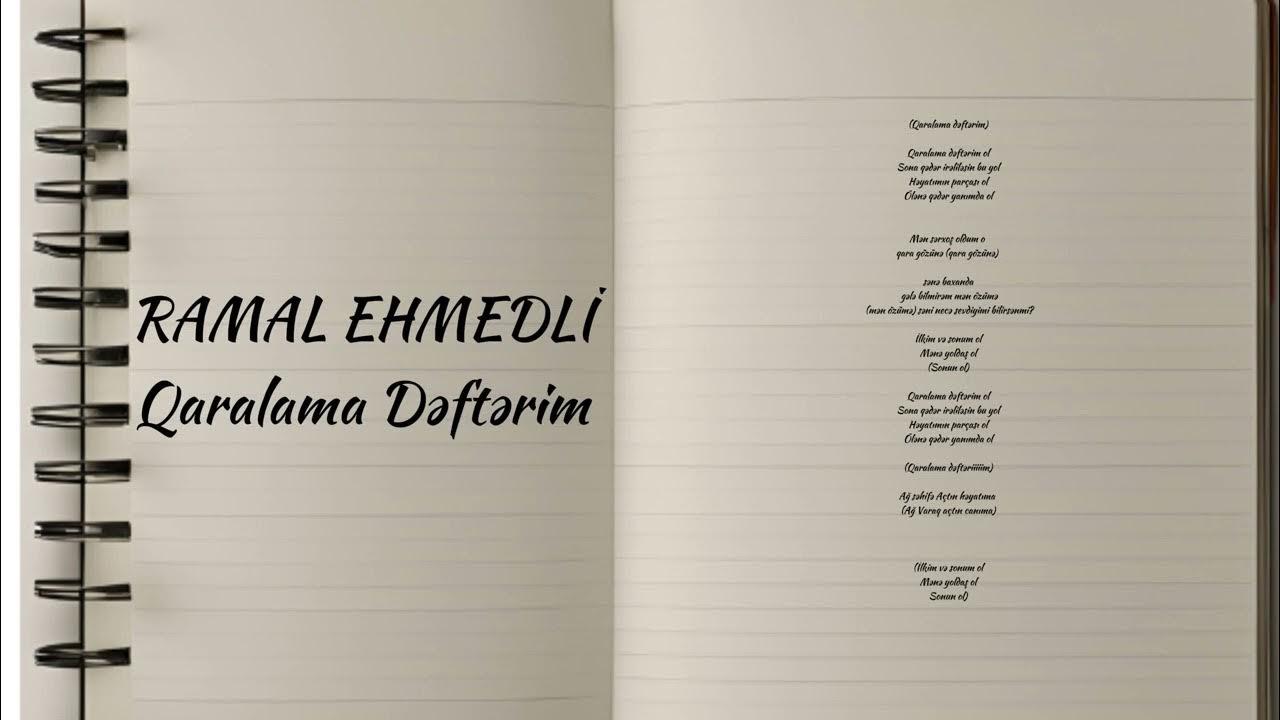 RAMAL EHMEDLİ
Qaralama Dəftərim
(Qaralama dəftərim)
Qaralama dəftərim ol
Sona qədər irəliləsin bu yol
Həyatımın parçası ol
Ölənə qədər yanımda ol
Mən sərxoş oldum o
qara gözünə (qara gözünə)
sənə baxanda
gələ bilmirəm mən özümə
(mən özümə) səni necə sevdiyimi bilirsənmi?
İlkim və sonum ol
Mənə yoldaş ol
(Sonun ol)
Qaralama dəftərim ol
Sona qədər irəliləsin bu yol
Həyatımın parçası ol
Ölənə qədər yanımda ol
(Qaralama dəftəriiiiim)
Ağ səhifə Açtın həyatıma
(Ağ Varaq açtın canıma)
(İlkim və sonum ol
Mənə yoldaş ol
Sonun ol)